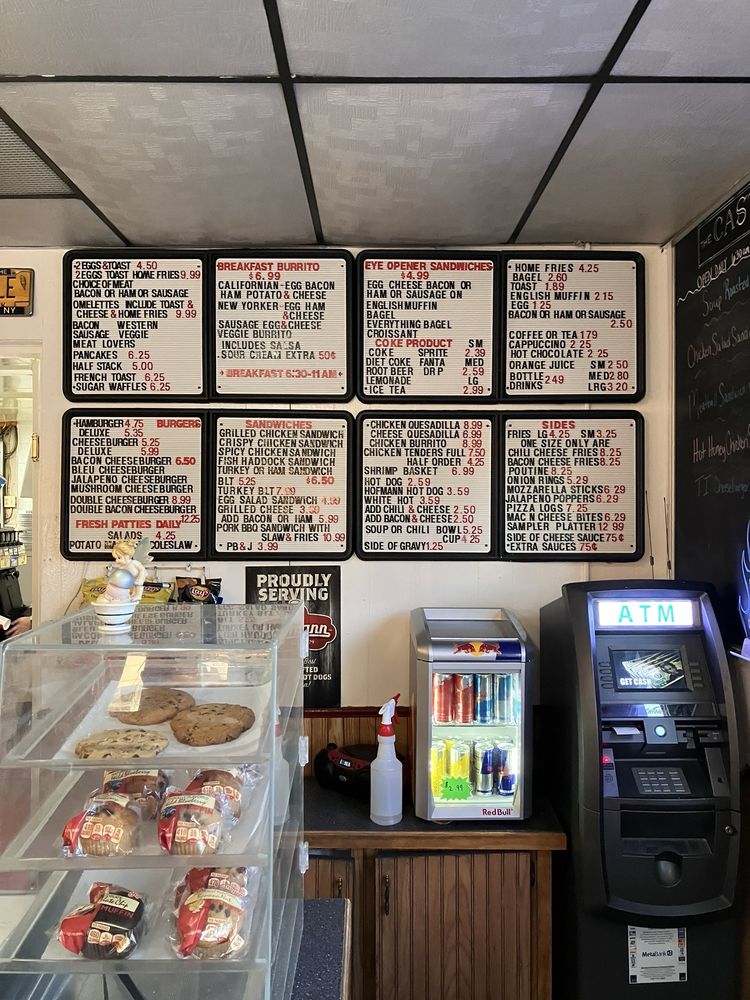 2 EGGS & TOAST 4.50
2 EGGS TOAST HOME FRIES 9.99
CHOICE OF MEAT
BACON OR HAM OR SAUSAGE
OMELETTES INCLUDE TOAST &
CHEESE & HOME FRIES 9.99
BACON WESTERN
SAUSAGE VEGGIE
MEAT LOVERS
PANCAKES 6.25
HALF STACK 5.00
FRENCH TOAST 6.25
SUGAR WAFFLES 6.25
BREAKFAST BURRITO
$6.99
CALIFORNIAN-EGG BACON
HAM POTATO & CHEESE
NEW YORKER-EGG HAM
& CHEESE
SAUSAGE EGG & CHEESE
VEGGIE BURRITO
INCLUDES SALSA
SOUR CREAM EXTRA 50¢
BREAKFAST 6:30-11 AM
EYE OPENER SANDWICHES
$4.99
EGG CHEESE BACON OR
HAM OR SAUSAGE ON
ENGLISH MUFFIN
BAGEL
EVERYTHING BAGEL
CROISSANT
COKE PRODUCT SM
COKE SPRITE 2.39
DIET COKE FANTA MED
ROOT BEER DR P 2.59
LEMONADE LG
ICE TEA 2.99
HOME FRIES 4.25
BAGEL 2.60
TOAST 1.89
ENGLISH MUFFIN 2 15
EGG 1.25
BACON OR HAM OR SAUSAGE
2.50
COFFEE OR TEA 1 79
CAPPUCCINO 2 25
HOT CHOCOLATE 2 25
ORANGE JUICE SM 2 50
BOTTLE 2 49 MED 2 80
DRINKS LRG 3 20
HAMBURGER 4.75 BURGERS
DELUXE 5.35
CHEESEBURGER 5.25
DELUXE 5.99
BACON CHEESEBURGER 6.50
BLEU CHEESEBURGER
JALAPENO CHEESEBURGER
MUSHROOM CHEESEBURGER
DOUBLE CHEESEBURGER 8.99
DOUBLE BACON CHEESEBURGER
12.25
FRESH PATTIES DAILY
SALADS 4.25
POTATO COLESLAW
SANDWICHES
GRILLED CHICKEN SANDWICH
CRISPY CHICKEN SANDWICH
SPICY CHICKEN SANDWICH
FISH HADDOCK SANDWICH
TURKEY OR HAM SANDWICH
BLT 5.25 $6.50
TURKEY BLT 7.99
EGG SALAD SANDWICH 4.99
GRILLED CHEESE 3.99
ADD BACON OR HAM 5.99
PORK BBQ SANDWICH WITH
SLAW & FRIES 10.99
PB & J 3.99
CHICKEN QUESADILLA 8.99
CHEESE QUESADILLA 6.99
CHICKEN BURRITO 8.99
CHICKEN TENDERS FULL 7.50
HALF ORDER 4.25
SHRIMP BASKET 6.99
HOT DOG 2.59
HOFMANN HOT DOG 3.59
WHITE HOT 3.59
ADD CHILI & CHEESE 2.50
ADD BACON & CHEESE 2.50
SOUP OR CHILI BOWL 5.25
CUP 4.25
SIDE OF GRAVY 1.25
SIDES
FRIES LG 4.25 SM 3.25
ONE SIZE ONLY ARE
CHILI CHEESE FRIES 8.25
BACON CHEESE FRIES 8.25
POUTINE 8.25
ONION RINGS 5.29
MOZZARELLA STICKS 6 29
JALAPENO POPPERS 6.29
PIZZA LOGS 7.25
MAC N CHEESE BITES 6.29
SAMPLER PLATTER 12 99
SIDE OF CHEESE SAUCE 75¢
EXTRA SAUCES 75¢
THE CAS
Soup
NY
PROUDLY
SERVING
ATM
GET CASH
Red Bull
2.49
MetaBank
MUFFIN